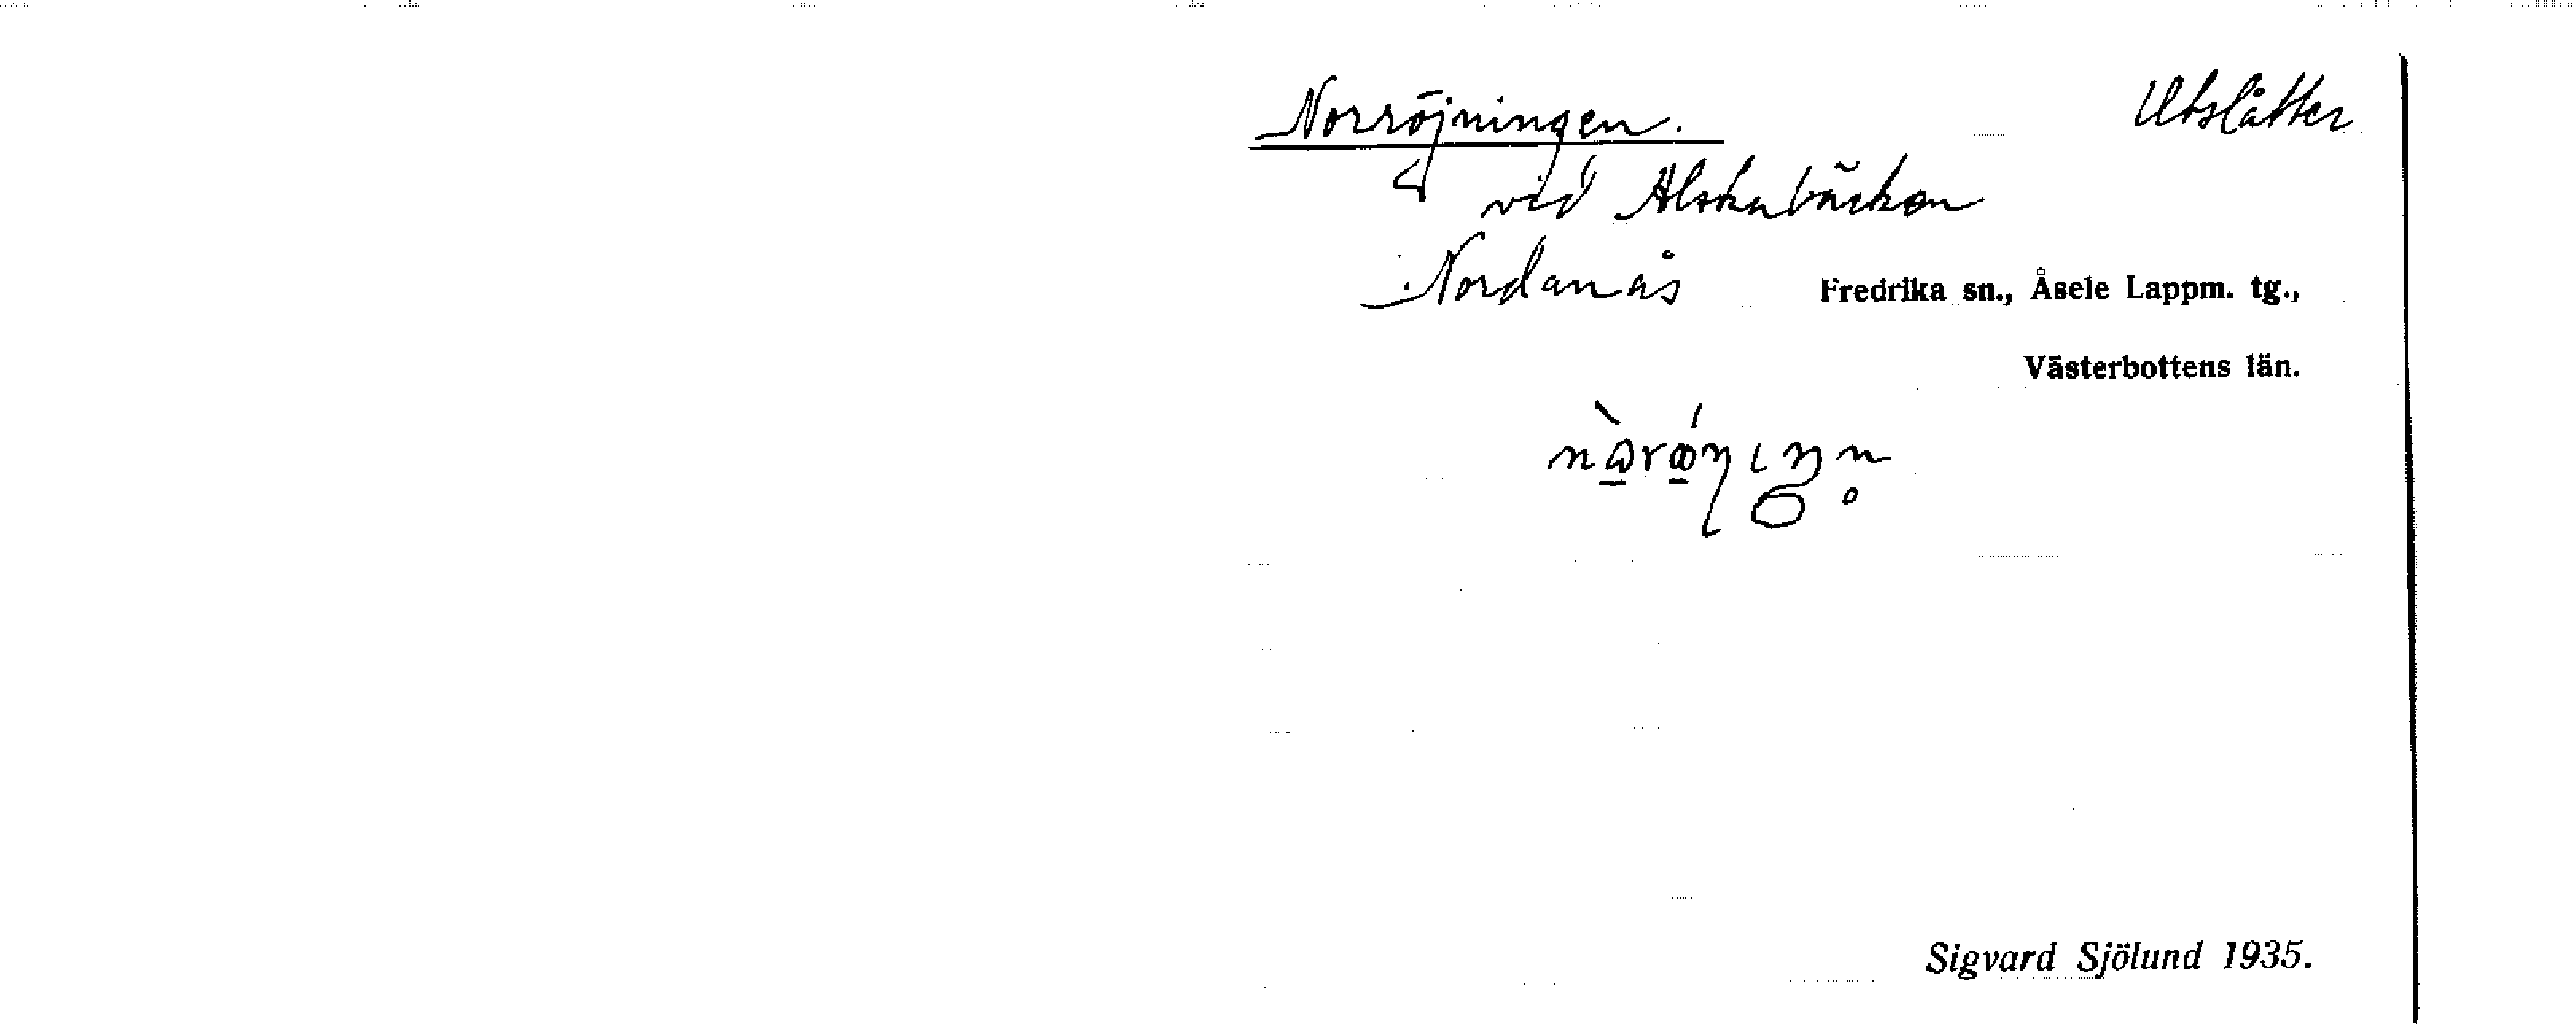 Norröjningen. Utslåtter
vid Alskabäcken
Nordanås Fredrika sn., Åsele Lappm. tg.,
Västerbottens län.
Sigvard Sjölund 1935.